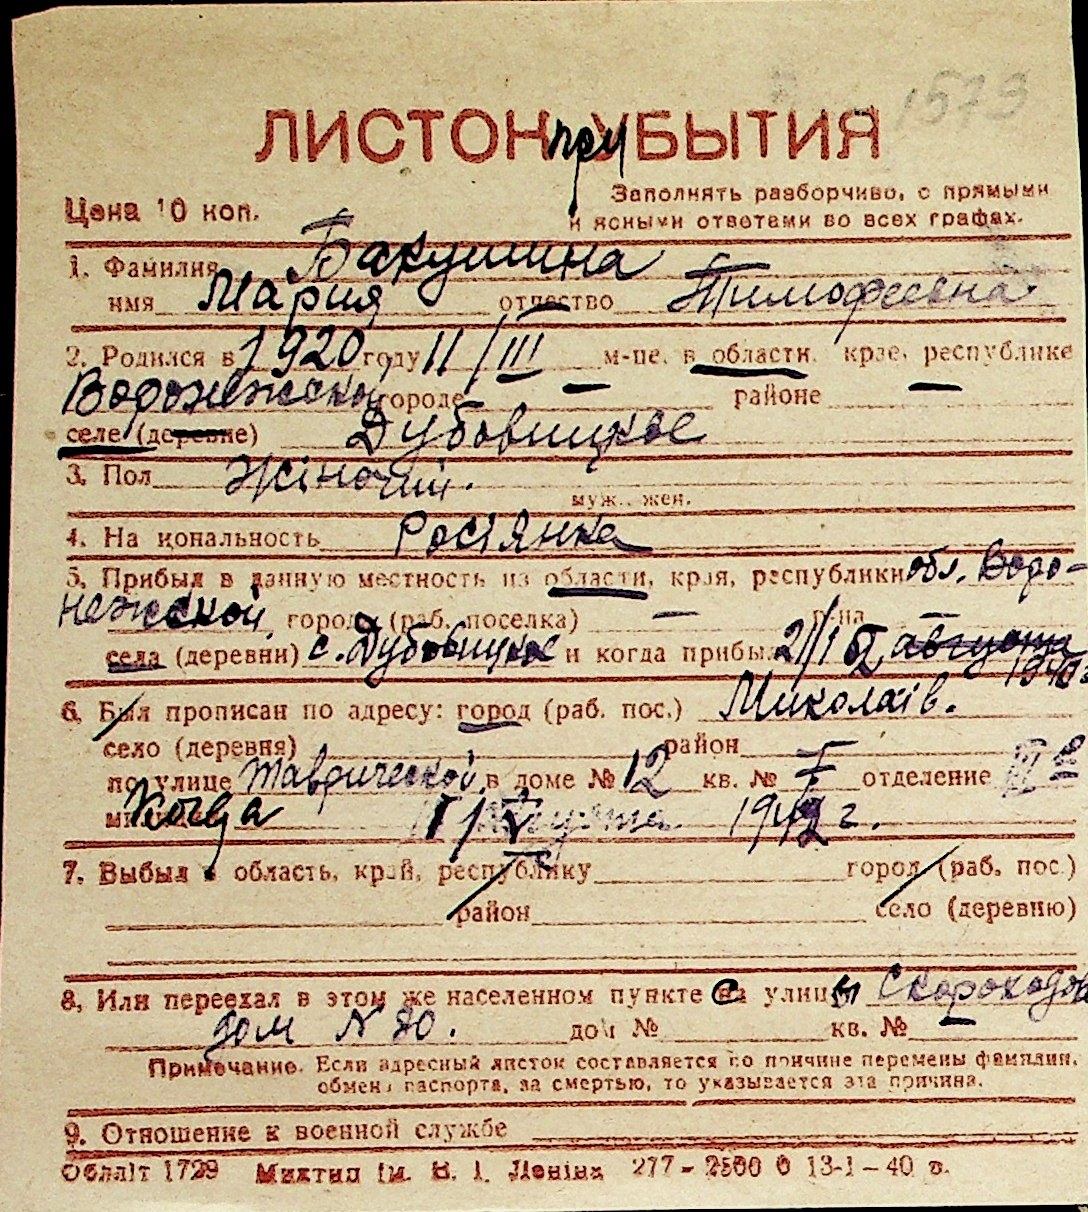 1573
ЛИСТОК при УБЫТИЯ
Цена 10 коп.
Заполнять разборчиво, с прямыми
и ясными ответами во всех графах.
1. Фамилия Бакушина
имя Мария отчество Тимофеевна
2. Родился в 1920 году 11/III м-це. в области, крае, республике
Воронежской городе — районе —
селе (деревне) Дубовицкое
3. Пол Жіночий.
муж., жен.
4. Национальность Росіянка
5. Прибыл в данную местность из области, края, республики обл. Воро-
нежской города (раб. поселка) — р-на —
села (деревни) с. Дубовицкое и когда прибыл августа
6. Был прописан по адресу: город (раб. пос.) Миколаїв.
село (деревня) район
по улице Таврической в доме № 12 кв. № — отделение
Когда 1942 г.
7. Выбыл в область, край, республику город (раб. пос.)
район село (деревню)
8. Или переехал в этом же населенном пункте с на улицы Скороходов
дом N 20. дом № кв. № —
Примечание. Если адресный листок составляется по причине перемены фамилии,
обмена паспорта, за смертью, то указывается эта причина.
9. Отношение к военной службе
Облліт 1729 Миктип ім. В. І. Леніна 277 – 2500 0 13-1 – 40 р.